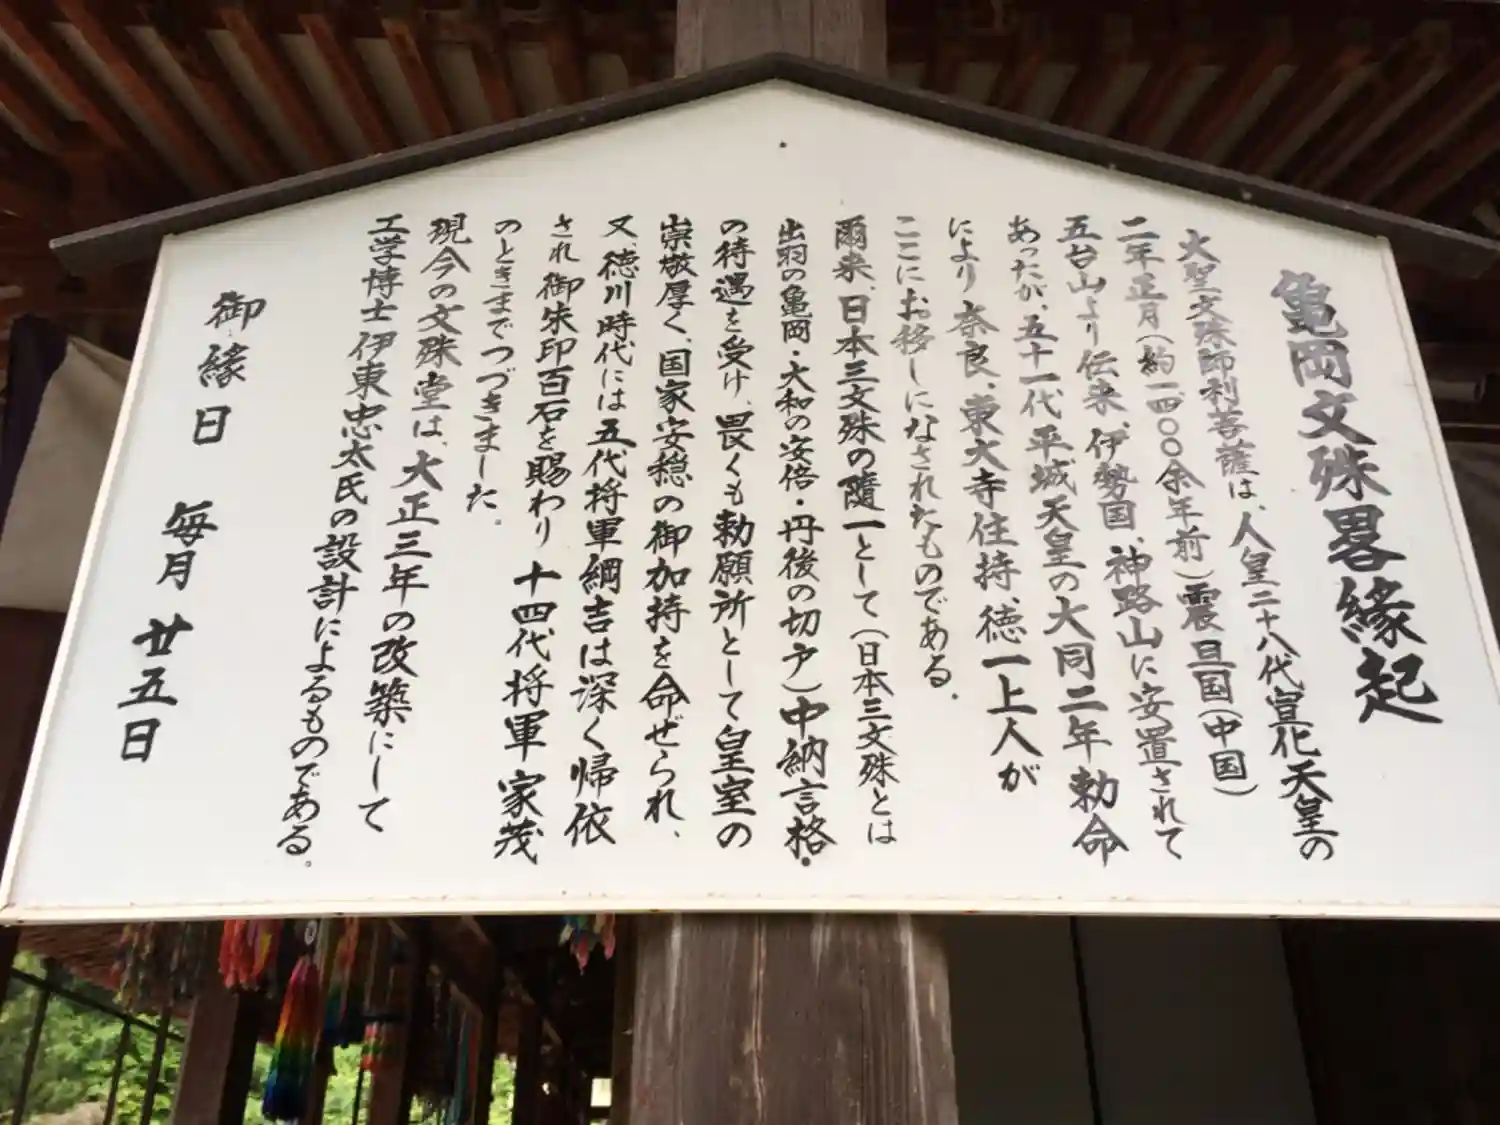 亀岡文殊畧縁起
大聖文殊師利菩薩は、人皇二十八代宣化天皇の
二年正月(約一四〇〇余年前)震旦国(中国)
五台山より伝来、伊勢国、神路山に安置されて
あったが、五十一代平城天皇の大同二年勅命
により奈良、東大寺住持、徳一上人が
ここにお移しになされたものである.
爾来、日本三文殊の随一として(日本三文殊とは
出羽の亀岡・大和の安倍・丹後の切戸)中納言格・
の待遇を受け、畏くも勅願所として皇室の
崇敬厚く、国家安穏の御加持を命ぜられ、
又、徳川時代には五代将軍綱吉は深く帰依
され御朱印百石を賜わり十四代将軍家茂
のときまでつづきました.
現今の文殊堂は、大正三年の改築にして
工学博士伊東忠太氏の設計によるものである。
御縁日 毎月廿五日